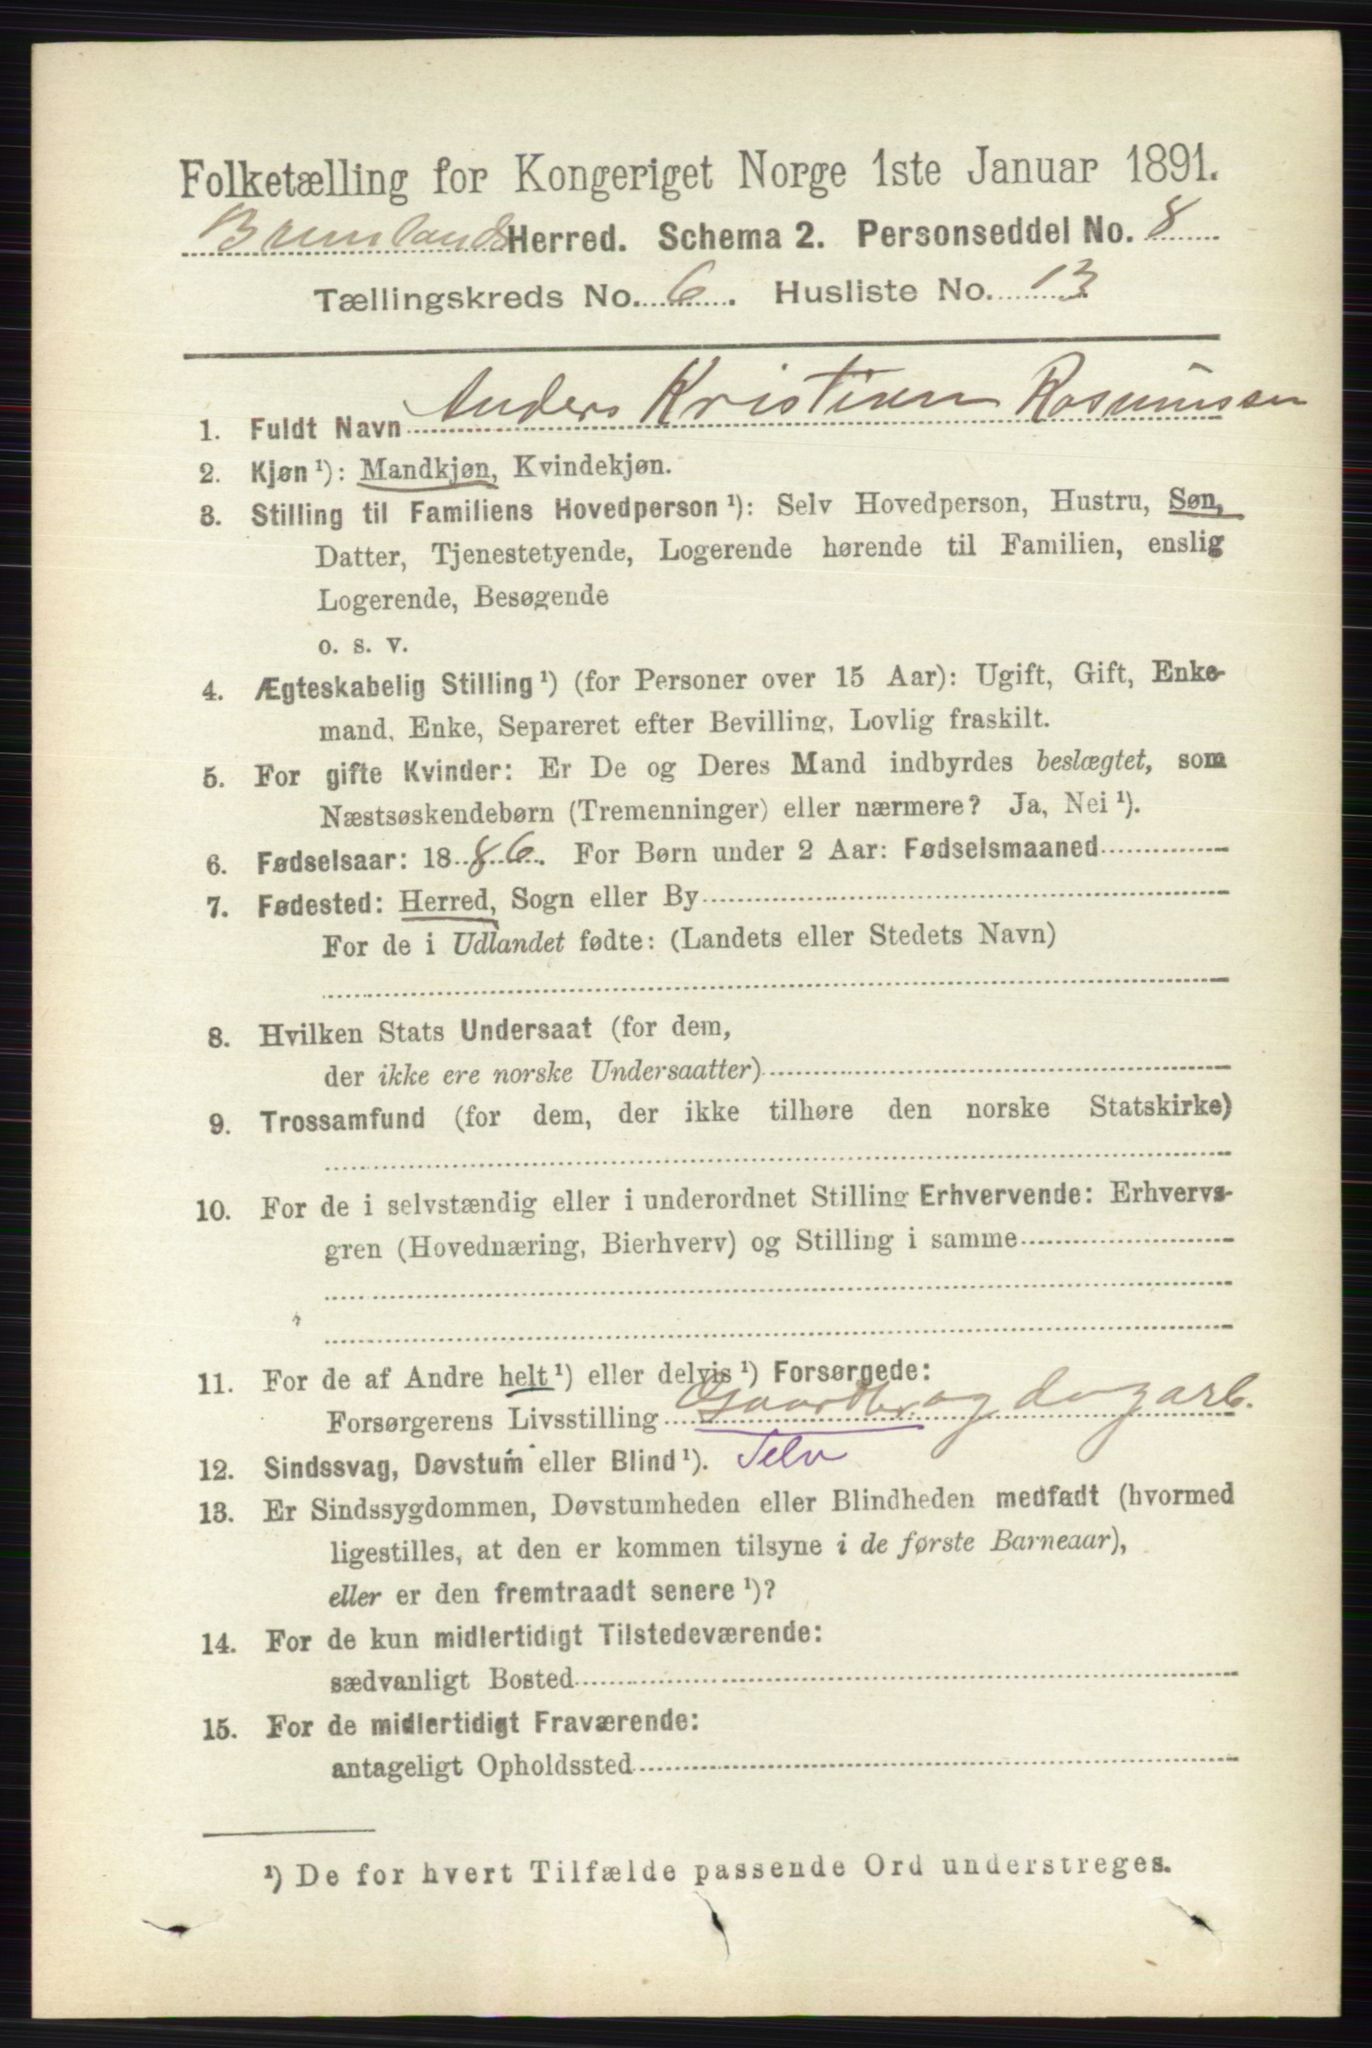 Folketælling for Kongeriget Norge 1ste Januar 1891.
Brunlands Herred. Schema 2. Personseddel No. 8
Tællingskreds No. 6. Husliste No. 13
1. Fuldt Navn Anders Kristian Rasmussen
2. Kjøn ¹): Mandkjøn, Kvindekjøn.
3. Stilling til Familiens Hovedperson ¹): Selv Hovedperson, Hustru, Søn,
Datter, Tjenestetyende, Logerende hørende til Familien, enslig
Logerende, Besøgende
o. s. v.
4. Ægteskabelig Stilling ¹) (for Personer over 15 Aar): Ugift, Gift, Enke-
mand, Enke, Separeret efter Bevilling, Lovlig fraskilt.
5. For gifte Kvinder: Er De og Deres Mand indbyrdes beslægtet, som
Næstsøskendebørn (Tremenninger) eller nærmere? Ja, Nei ¹).
6. Fødselsaar: 1886. For Børn under 2 Aar: Fødselsmaaned
7. Fødested: Herred, Sogn eller By
For de i Udlandet fødte: (Landets eller Stedets Navn)
8. Hvilken Stats Undersaat (for dem,
der ikke ere norske Undersaatter)
9. Trossamfund (for dem, der ikke tilhøre den norske Statskirke)
10. For de i selvstændig eller i underordnet Stilling Erhvervende: Erhvervs-
gren (Hovednæring, Bierhverv) og Stilling i samme
11. For de af Andre helt ¹) eller delvis ¹) Forsørgede:
Forsørgerens Livsstilling Gaardbr. og dagarb.
12. Sindssvag, Døvstum eller Blind ¹). Selv
13. Er Sindssygdommen, Døvstumheden eller Blindheden medfødt (hvormed
ligestilles, at den er kommen tilsyne i de første Barneaar),
eller er den fremtraadt senere ¹)?
14. For de kun midlertidigt Tilstedeværende:
sædvanligt Bosted
15. For de midlertidigt Fraværende:
antageligt Opholdssted
¹) De for hvert Tilfælde passende Ord understreges.